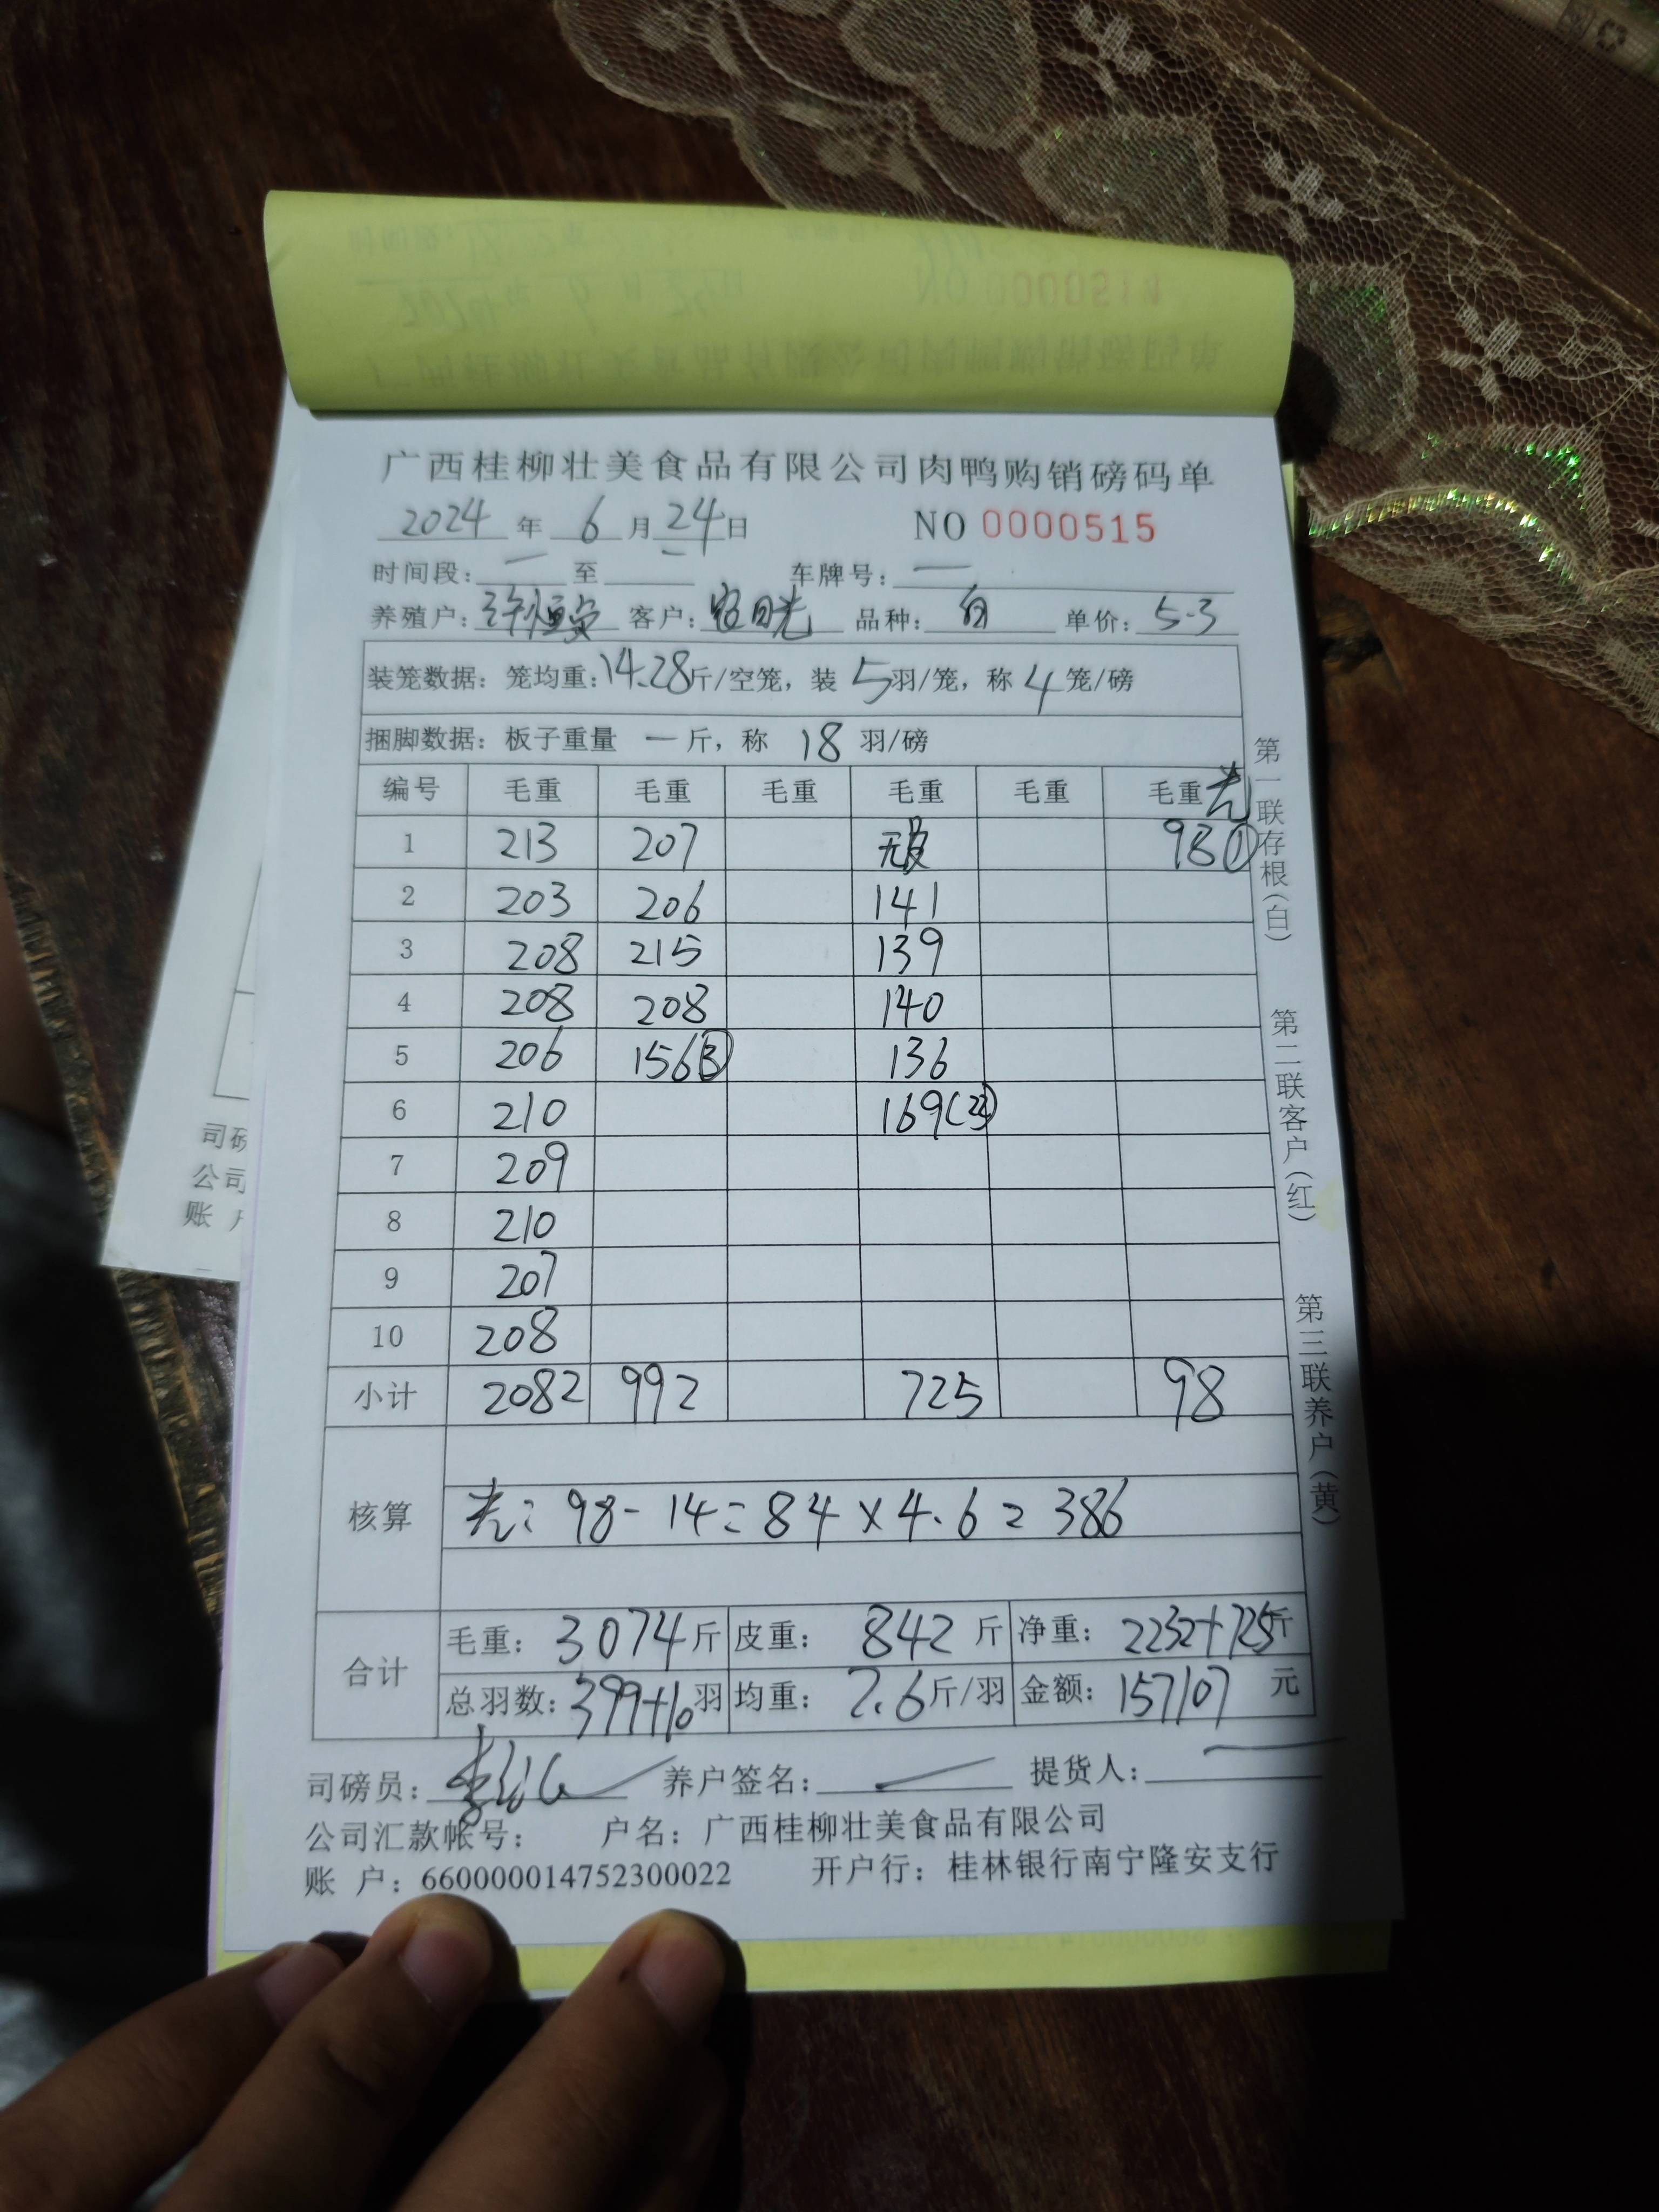 广西桂柳壮美食品有限公司肉鸭购销磅码单
2024 年 6 月 24 日 NO 0000515
时间段: 一 至 车牌号: 一
养殖户: 许恒 客户: 日光 品种: 白 单价: 5.3
装笼数据: 笼均重: 14.28 斤/空笼, 装 5 羽/笼, 称 4 笼/磅
捆脚数据: 板子重量 一 斤, 称 18 羽/磅
编号 毛重 毛重 毛重 毛重 毛重 毛重 光
1 213 207 无皮 98①
2 203 206 141
3 208 215 139
4 208 208 140
5 206 156③ 136
6 210 169(22)
7 209
8 210
9 207
10 208
小计 2082 992 725 98
核算 光: 98-14=84×4.6=386
合计 毛重: 3074 斤 皮重: 842 斤 净重: 2232+725 斤
总羽数: 399+10 羽 均重: 7.6 斤/羽 金额: 157107 元
司磅员: 养户签名: 提货人:
公司汇款帐号: 户名: 广西桂柳壮美食品有限公司
账 户: 660000014752300022 开户行: 桂林银行南宁隆安支行
第一联存根(白) 第二联客户(红) 第三联养户(黄)
司磅
公司
账